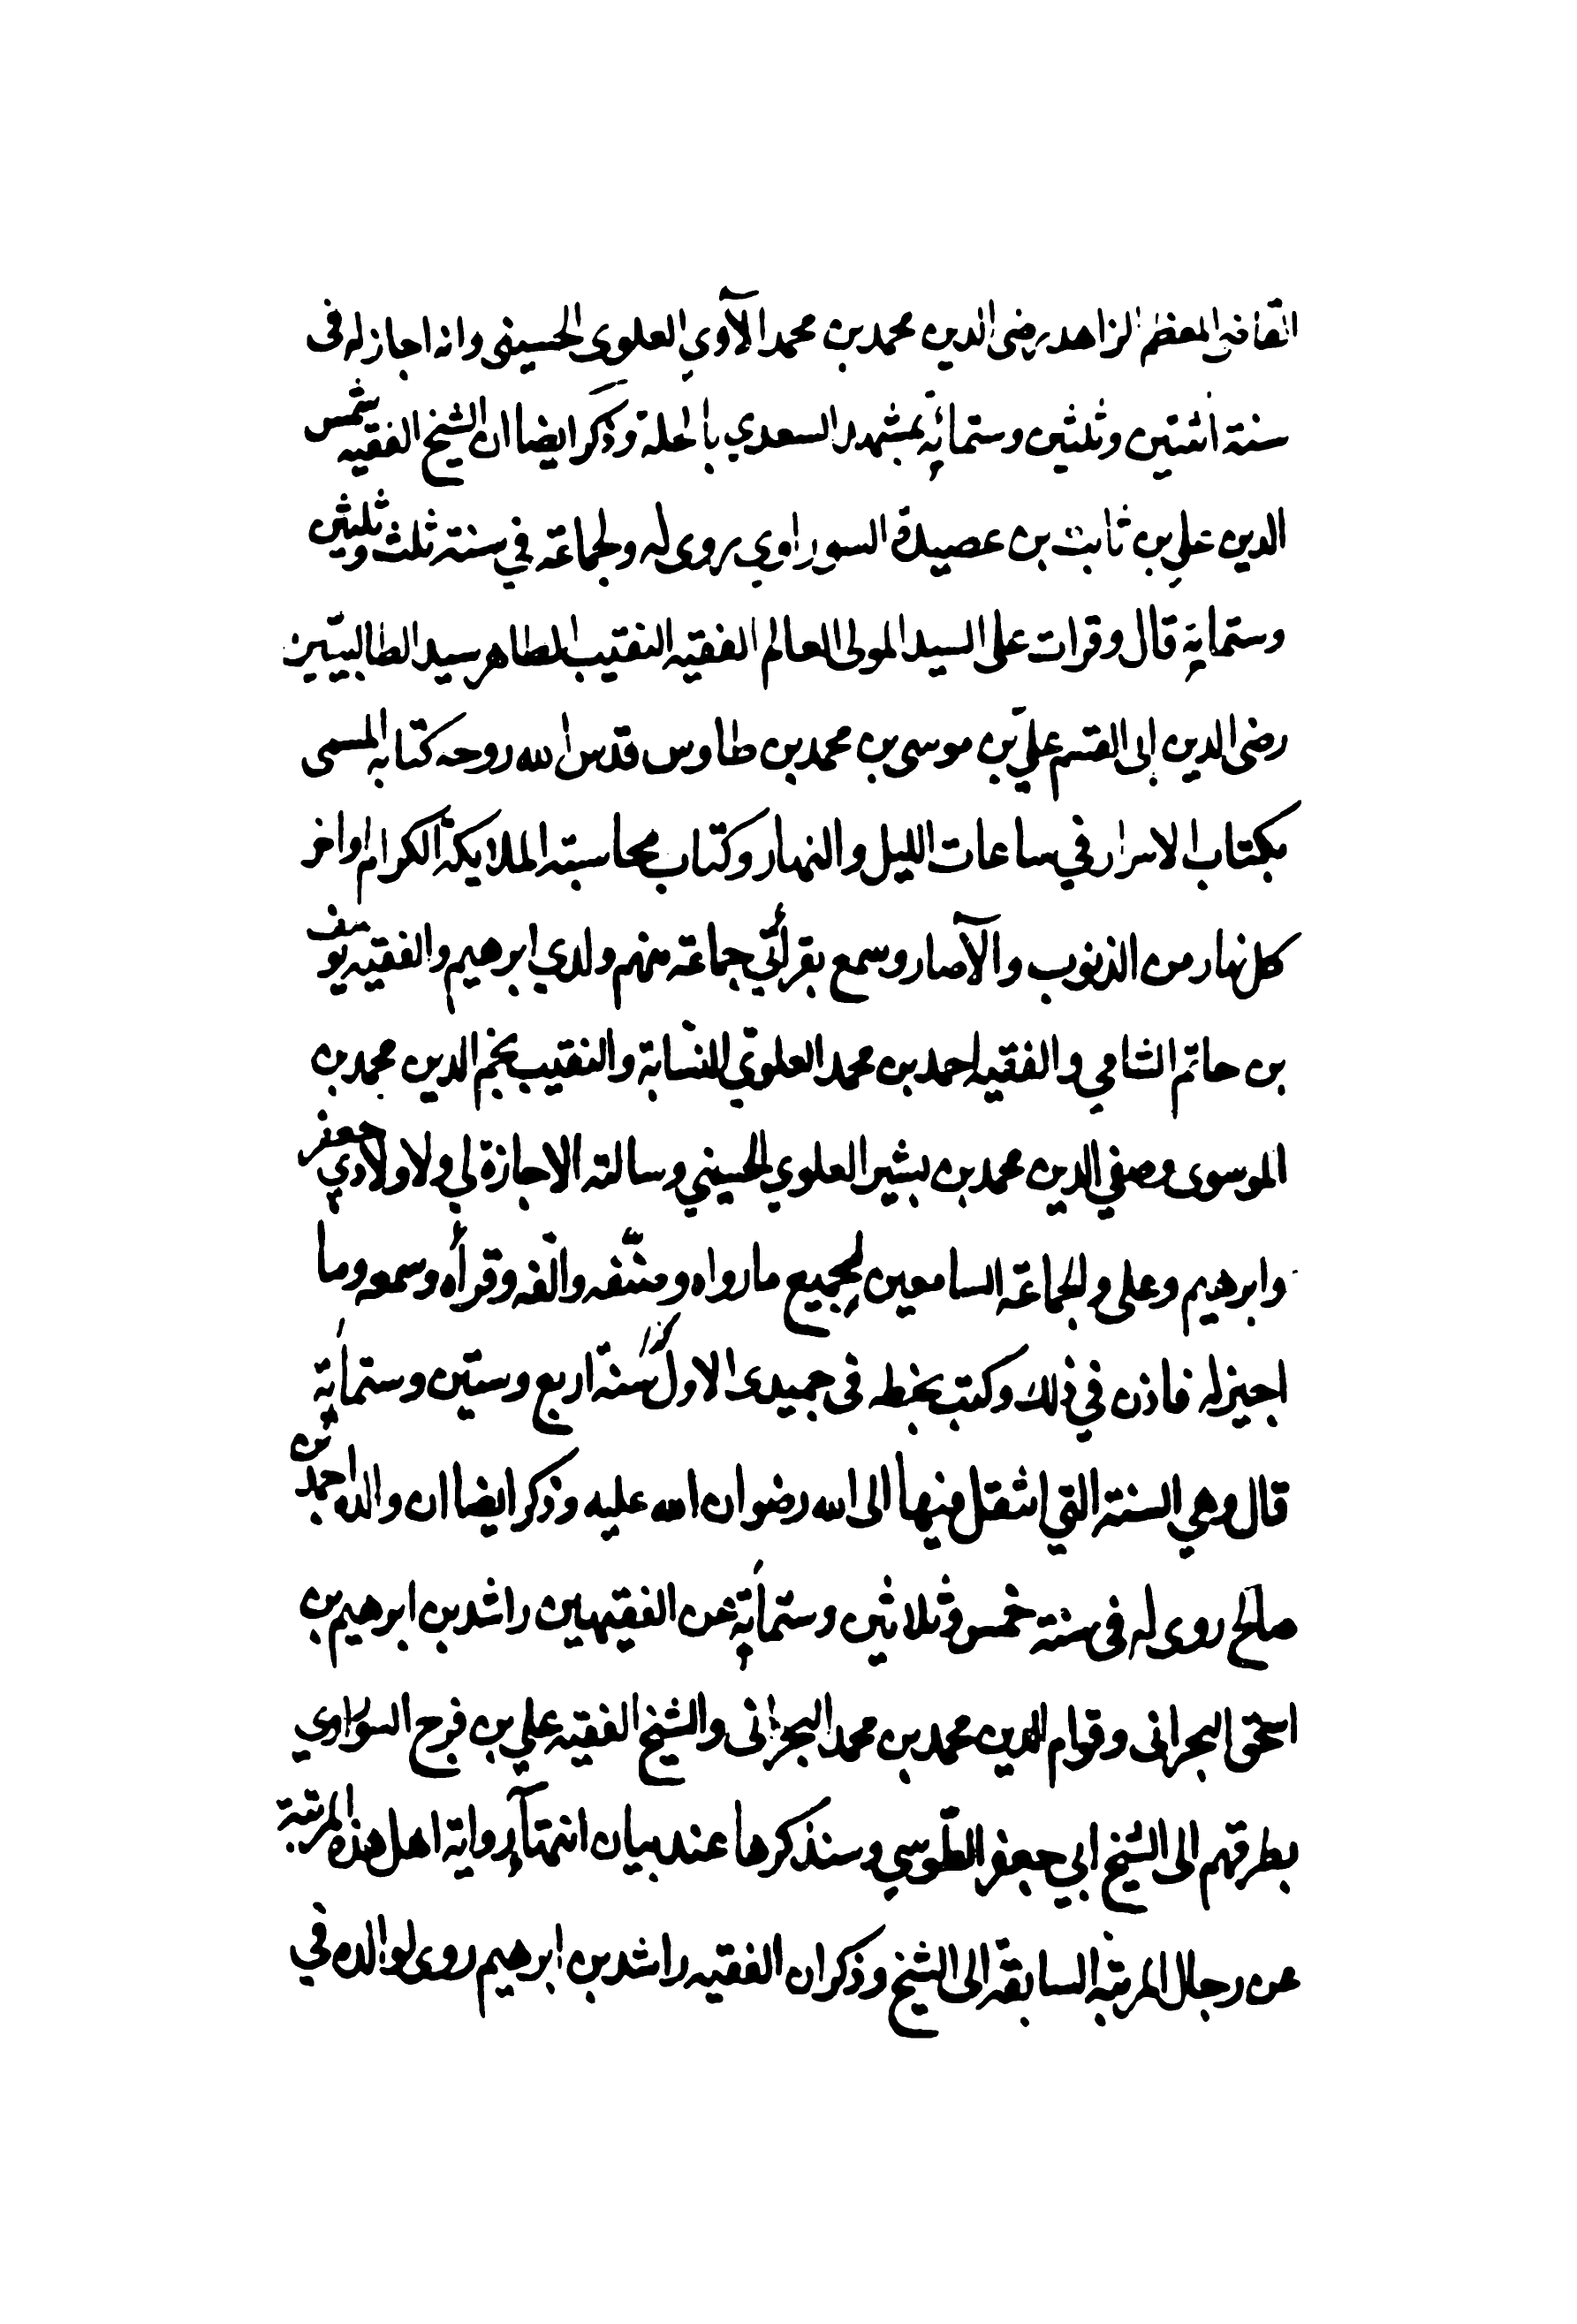 القاضي المعظم الزاهد رضى الدين محمد بن محمد الآوي العلوى الحسيني وانه اجاز له فى
سنة اثنتين وثلثين وستمائة بمشهد السعدي بالحلة وذكر ايضا ان الشيخ الفقيه شمس
الدين علي بن ثابت بن عصيدة السوراوي يروى له ولجماعة في سنة ثلث وثلثين
وستماية قال وقرات على السيد المولى العالم الفقيه النقيب الطاهر سيد الطالبيين
رضى الدين ابى القسم علي بن موسى بن محمد بن طاوس قدس الله روحه كتابه المسمى
بكتاب الاسرار في ساعات الليل والنهار وكتاب محاسبة الملايكة الكرام اواخر
كل نهار من الذنوب والآصار وسمع بقرائتي جماعة منهم ولدي ابرهيم والفقيه يوسف
بن حاتم الشامي والفقيه احمد بن محمد العلوي النسابة والنقيب نجم الدين محمد بن
الموسوى وصفي الدين محمد بن بشير العلوي الحسيني وسالته الاجازة لي ولاولادي جعفر
وابرهيم وعلى ولجماعة السامعين لجميع مارواه وصنّفه والّفه وقرأه وسمعه وما
اجيز له فاذن في ذلك وكتب بخطه فى جميدى الاول سنة اربع وستين وستمائة
قال وهي السنة التي انتقل فيها الى الله رضوان الله عليه وذكر ايضا ان والده احمد بن
صالح روى له فى سنة خمس وثلاثين وستمائة عن الفقيهين راشد بن ابرهيم بن
اسحق البحرانى وقوام الدين محمد بن محمد البحرانى والشيخ الفقيه علي بن فرج السوراوي
بطرقهم الى الشيخ ابي جعفر الطّوسي وسنذكرها عند بيان انتهآء رواية اهل هذه المرتبة
عن رجال المرتبة السابقة الى الشيخ وذكر ان الفقيه راشد بن ابرهيم روى لوالده في